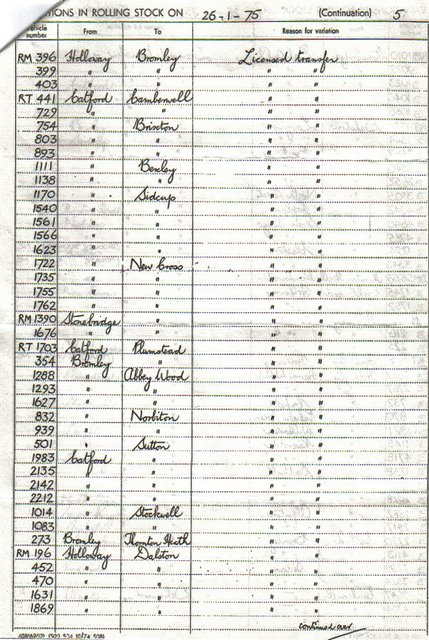 TIONS IN ROLLING STOCK ON 26-1-75 (Continuation) 5
Vehicle number From To Reason for variation
RM 396 Holloway Bromley Licensed transfer
399 " " " "
403 " " " "
RT 441 Catford Camberwell " "
729 " " " "
754 " Brixton " "
803 " " " "
893 " " " "
1111 " Bexley " "
1138 " " " "
1170 " Sidcup " "
1540 " " " "
1561 " " " "
1566 " " " "
1623 " " " "
1722 " New Cross " "
1735 " " " "
1755 " " " "
1762 " " " "
RM 1390 Stonebridge " " "
1676 " " " "
RT 1703 Catford Plumstead " "
354 Bromley " " "
1288 " Abbey Wood " "
1293 " " " "
1627 " " " "
832 " Norbiton " "
939 " " " "
501 " Sutton " "
1983 Catford " " "
2135 " " " "
2142 " " " "
2212 " " " "
1014 " Stockwell " "
1083 " " " "
273 Bromley Thornton Heath " "
RM 196 Holloway Dalston " "
452 " " " "
470 " " " "
1631 " " " "
1869 " " " "
continued over